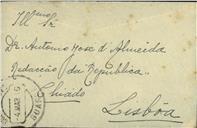 Ill.mo Sr.
Dr. Antonio José d'Almeida
Redacção da Republica
Chiado
Lisbôa
4 MAR